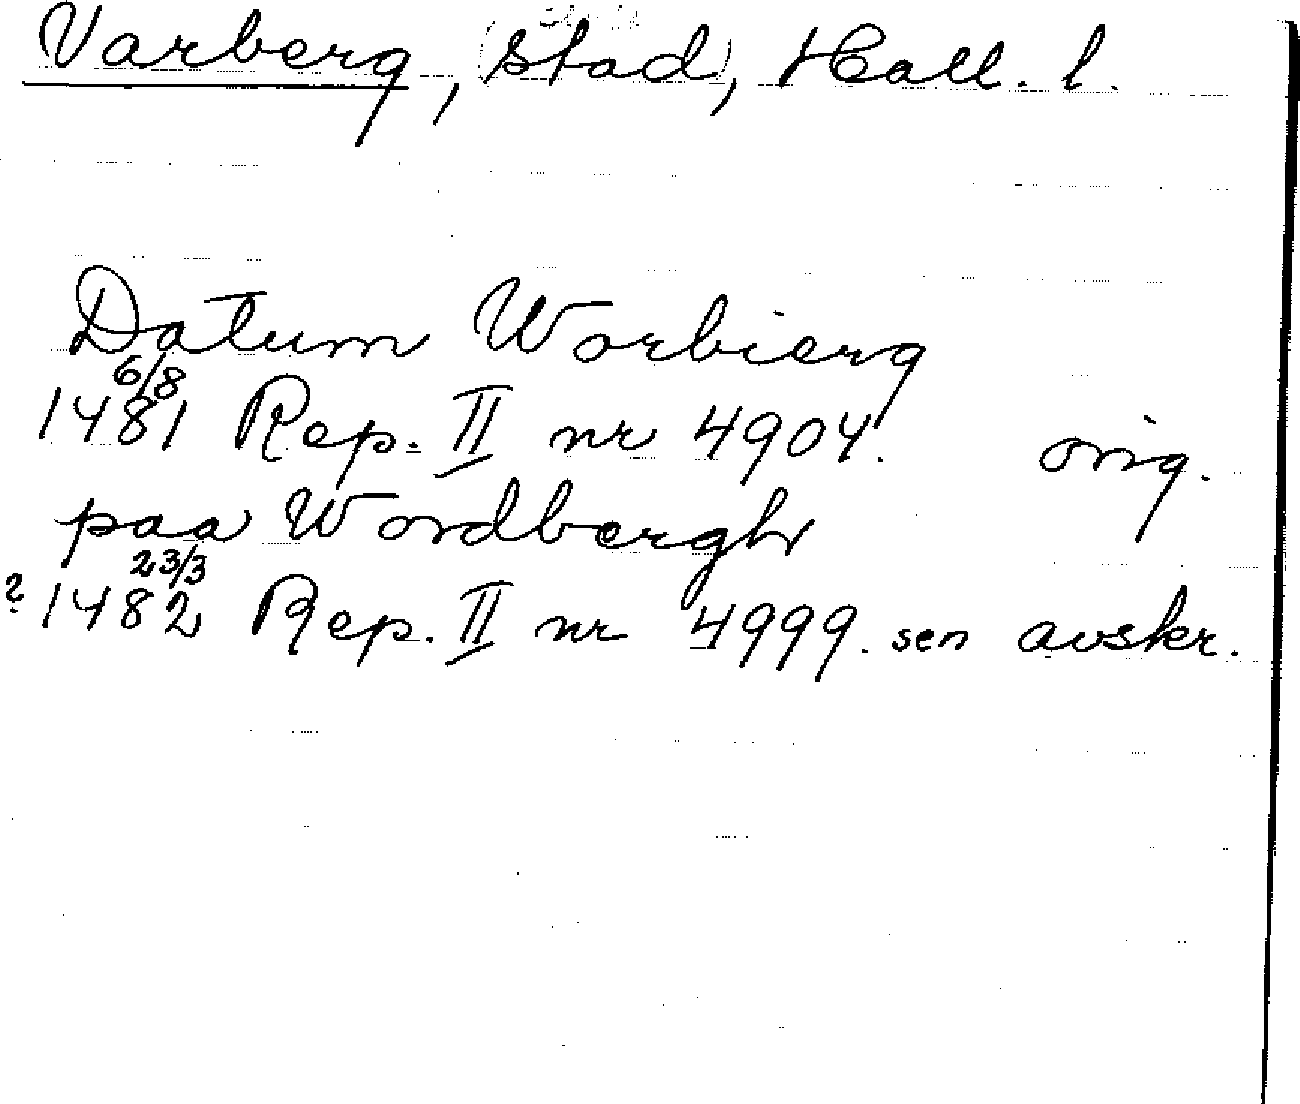 Varberg, stad, Hall. l.
Datum Worbierg
6/8
1481 Rep. II nr 4904. orig.
paa Wordbergh
23/3
? 1482 Rep. II nr 4999. sen avskr.